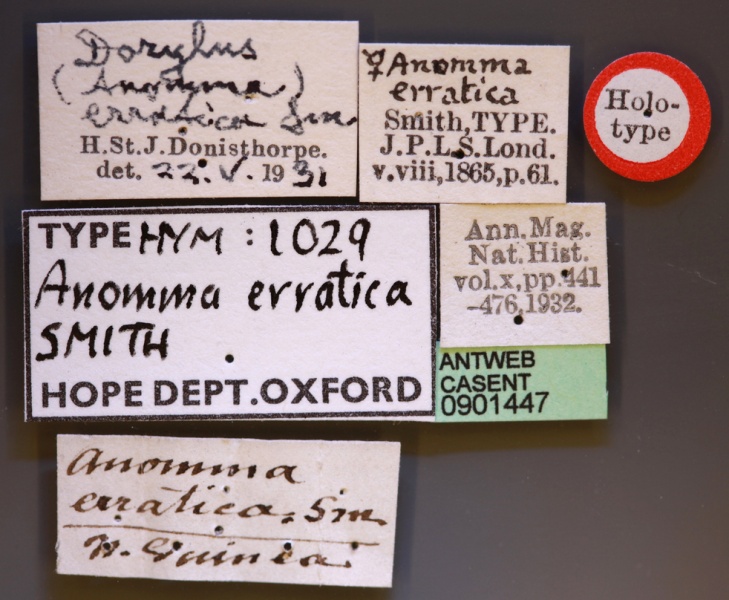 Dorylus
(Anomma)
erratica Sm
H.St.J.Donisthorpe.
det. 22.V.1931
☿ Anomma
erratica
Smith,TYPE.
J.P.L.S.Lond.
v.viii,1865,p.61.
Holo-
type
TYPE HYM : 1029
Anomma erratica
SMITH
HOPE DEPT.OXFORD
Ann. Mag.
Nat. Hist.
vol.x,pp.441
-476,1932.
ANTWEB
CASENT
0901447
Anomma
erratica. Sm
N. Guinea.